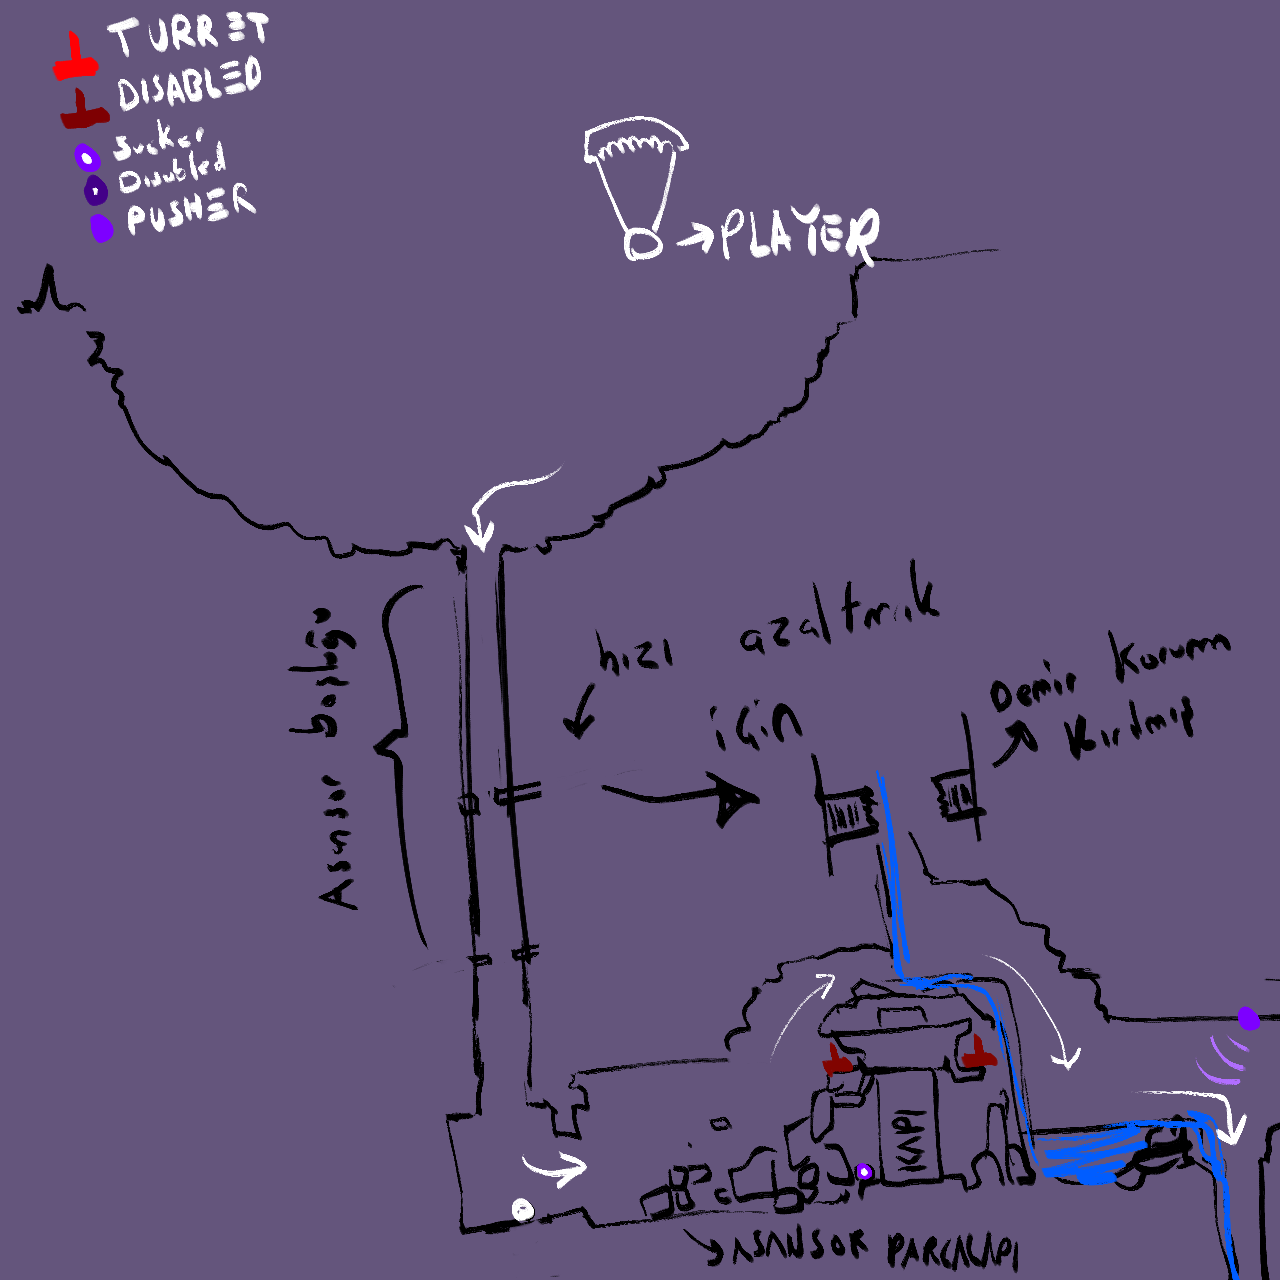 TURRET
DISABLED
Sucker
Disabled
PUSHER
PLAYER
Asansor boşluğu
hızı azaltmak
için
Demir Korum
Kırılmış
KAPI
ASANSOR PARCALAPI